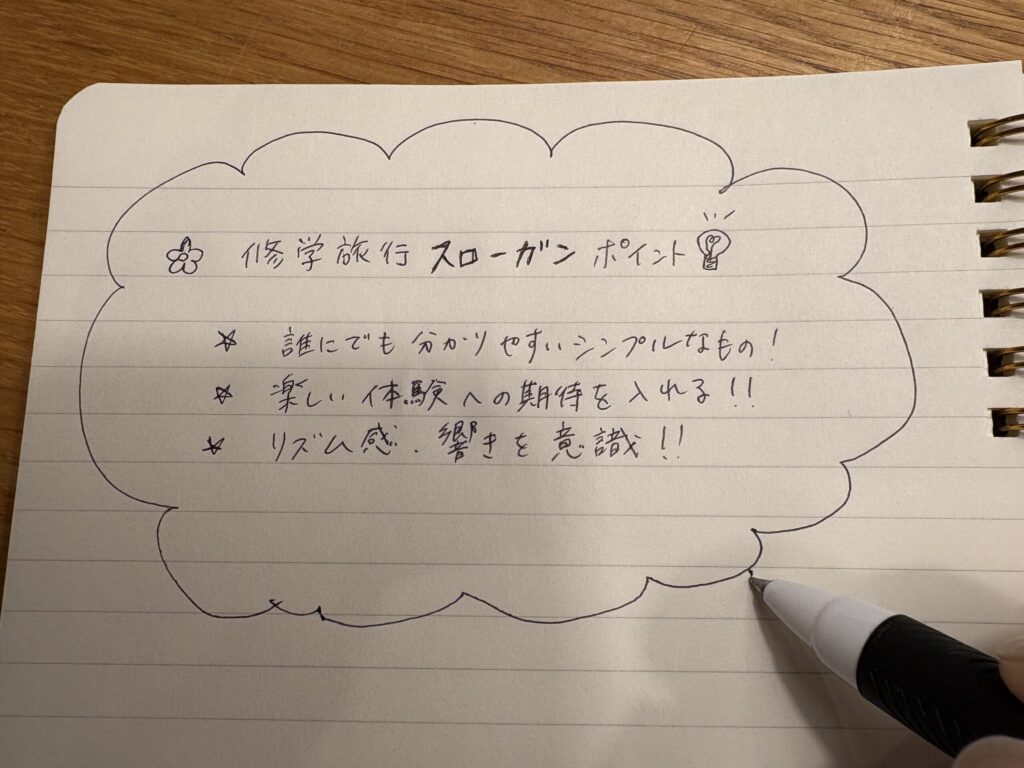 修学旅行 スローガン ポイント
誰にでも分かりやすいシンプルなもの!
楽しい体験への期待を入れる!!
リズム感.響きを意識!!